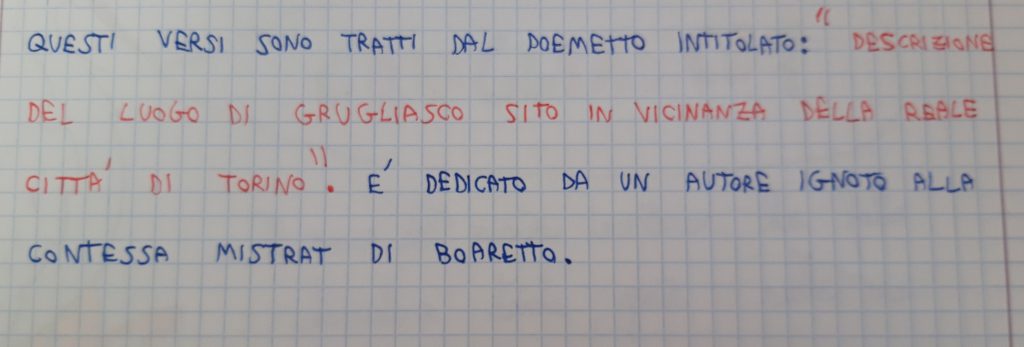 QUESTI VERSI SONO TRATTI DAL DOEMETTO INTITOLATO: "DESCRIZIONE
DEL LUOGO DI GRUGLIASCO SITO IN VICINANZA DELLA REALE
CITTA' DI TORINO". E' DEDICATO DA UN AUTORE IGNOTO ALLA
CONTESSA MISTRAT DI BOARETTO.